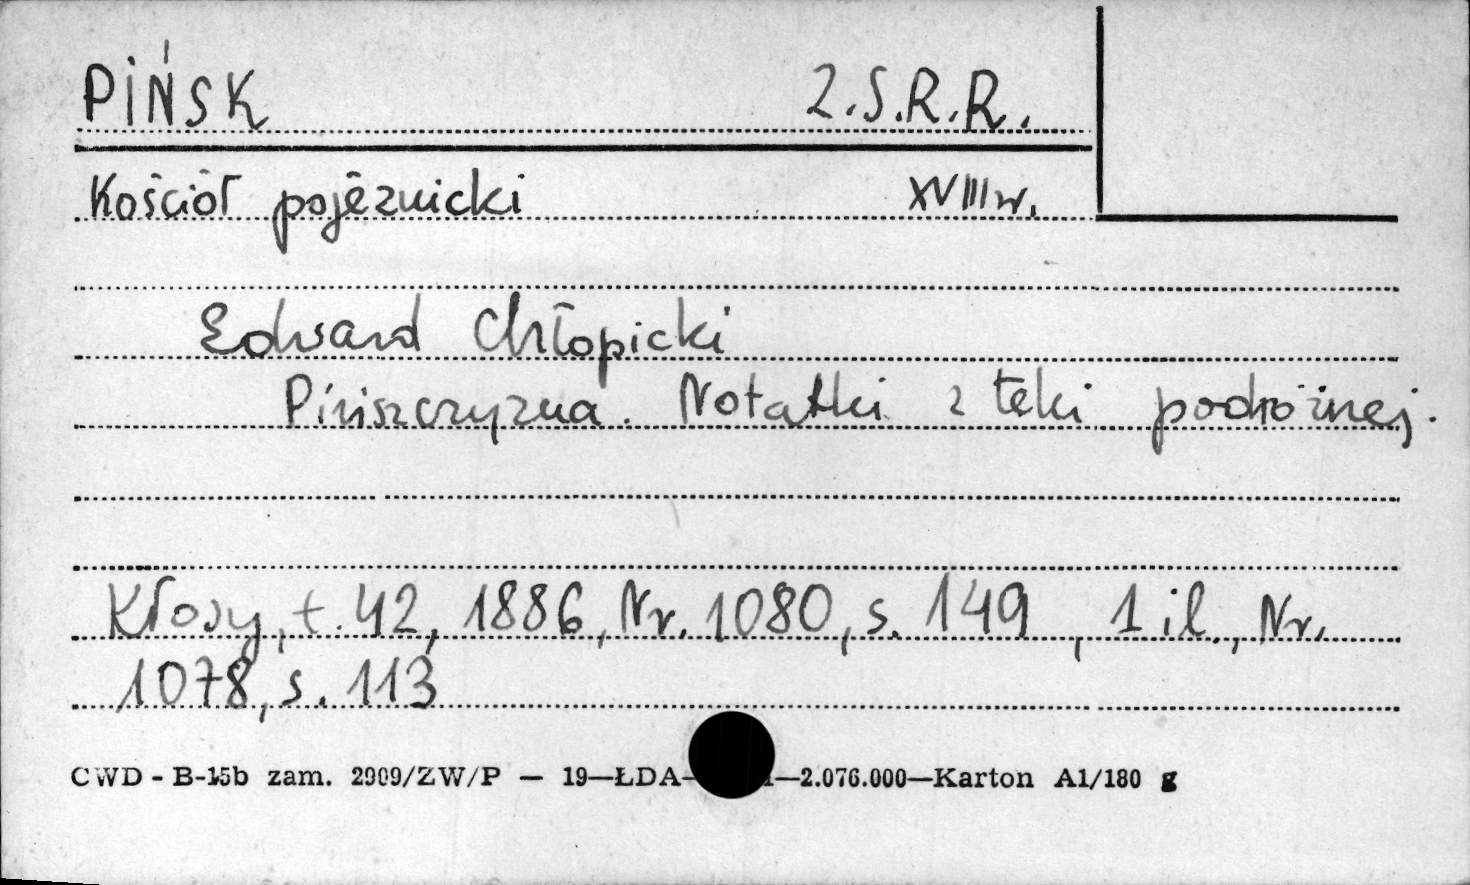 PIŃSK Z.S.R.R.
Kościół pojezuicki XVIII w.
Edward Chłopicki
Pińszczyzna. Notatki z teki podróżnej.
Kłosy, t. 42, 1886, Nr. 1080, s. 149, 1 il., Nr.
1078, s. 113
CWD - B-15b zam. 2909/ZW/P — 19—ŁDA- —2.076.000—Karton A1/180 g